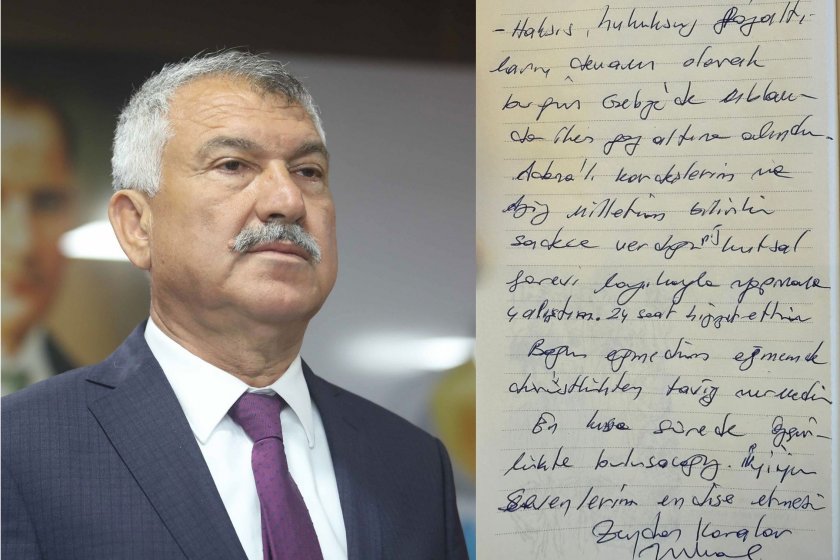 - Haksız, hukuksuz gözaltı-
ların devamı olarak
bugün Gebze'de
gözaltına alındı
Adana'lı kardeşlerim ve
aziz milletim bilsin ki
sadece verdiğiniz kutsal
görevi layıkıyla yapmaya
çalıştım. 24 saat hizmet ettim
Boyun eğmedim eğmem de
dürüstlükten taviz vermedim
En kısa sürede özgür-
lükte buluşacağız. İyiyim
Sevenlerim endişe etmesin
Zeydan Karalar